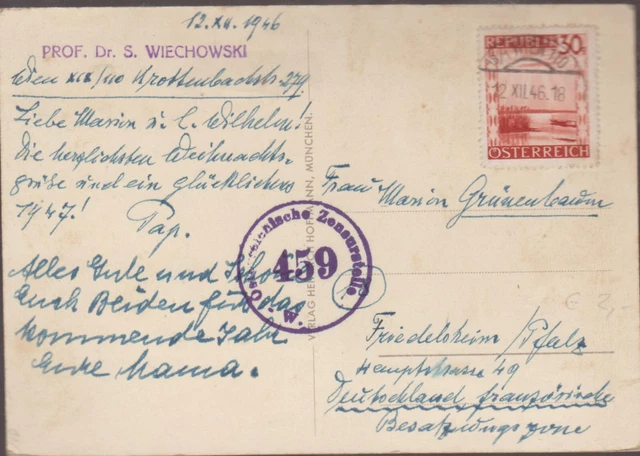 12.XII.1946
PROF. Dr. S. WIECHOWSKI
Wien XIX/110 Krottenbachstr. 279
Liebe Marion u. l. Wilhelm!
Die herzlichsten Weihnachts-
grüße und ein glückliches
1947!
Pap.
Alles Gute und
Euch Beiden für das
kommende Jahr
Eure Mama.
VERLAG HOFFMANN, MÜNCHEN.
Österreichische Zensurstelle
459
W.
REPUBLIK 30g
12.XII.46.18
ÖSTERREICH
Frau Marion Grünenbaum
Friedelsheim/Pfalz
Hauptstrasse 49
Deutschland französische
Besatzungszone
€ 2,-